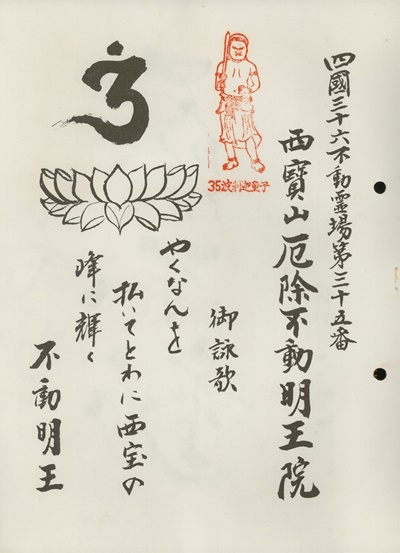 四國三十六不動霊場第三十五番
西寶山厄除不動明王院
35波利迦童子
御詠歌
やくなんを
払いてとわに西宝の
峰に輝く
不動明王